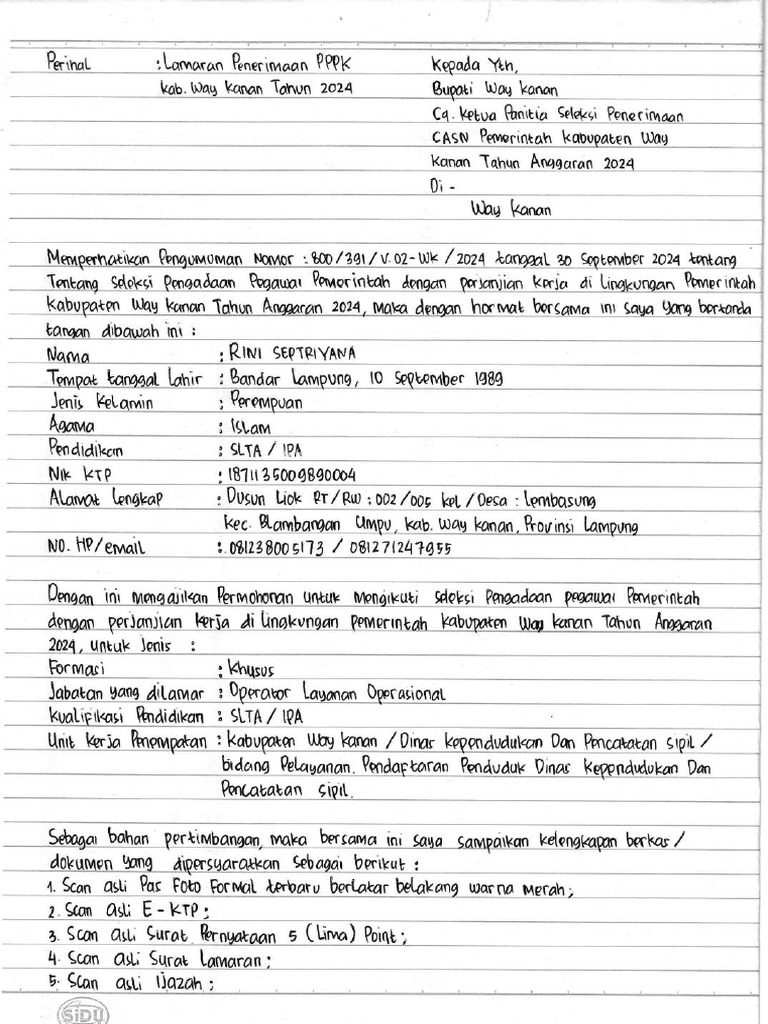 Perihal : Lamaran Penerimaan PPPK
Kab. Way Kanan Tahun 2024
Kepada Yth,
Bupati Way Kanan
Cq. Ketua Panitia Seleksi Penerimaan
CASN Pemerintah Kabupaten Way
Kanan Tahun Anggaran 2024
Di -
Way Kanan
Memperhatikan Pengumuman Nomor : 800/391/V.02-WK/2024 tanggal 30 September 2024 tentang
Tentang seleksi Pengadaan Pegawai Pemerintah dengan perjanjian kerja di lingkungan Pemerintah
Kabupaten Way Kanan Tahun Anggaran 2024, maka dengan hormat bersama ini saya yang bertanda
tangan dibawah ini :
Nama : RINI SEPTRIYANA
Tempat tanggal lahir : Bandar Lampung, 10 September 1989
Jenis Kelamin : Perempuan
Agama : Islam
Pendidikan : SLTA / IPA
Nik KTP : 1871135009890004
Alamat Lengkap : Dusun Liok RT/RW : 002/005 kel/Desa : Lembasung
Kec. Blambangan Umpu, Kab. Way Kanan, Provinsi Lampung
NO. HP/email : 081238005173 / 081271247955
Dengan ini mengajukan Permohonan untuk mengikuti seleksi Pengadaan pegawai Pemerintah
dengan perjanjian kerja di lingkungan pemerintah Kabupaten Way Kanan Tahun Anggaran
2024, untuk Jenis :
Formasi : Khusus
Jabatan yang dilamar : Operator Layanan Operasional
Kualifikasi Pendidikan : SLTA / IPA
Unit Kerja Penempatan : Kabupaten Way Kanan / Dinas Kependudukan Dan Pencatatan Sipil /
bidang Pelayanan. Pendaftaran Penduduk Dinas Kependudukan Dan
Pencatatan Sipil.
Sebagai bahan pertimbangan, maka bersama ini saya sampaikan kelengkapan berkas /
dokumen yang dipersyaratkan sebagai berikut :
1. Scan asli Pas Foto Formal terbaru berlatar belakang warna merah;
2. Scan asli E-KTP;
3. Scan asli Surat Pernyataan 5 (Lima) Point;
4. Scan asli Surat Lamaran;
5. Scan asli Ijazah;
SiDU